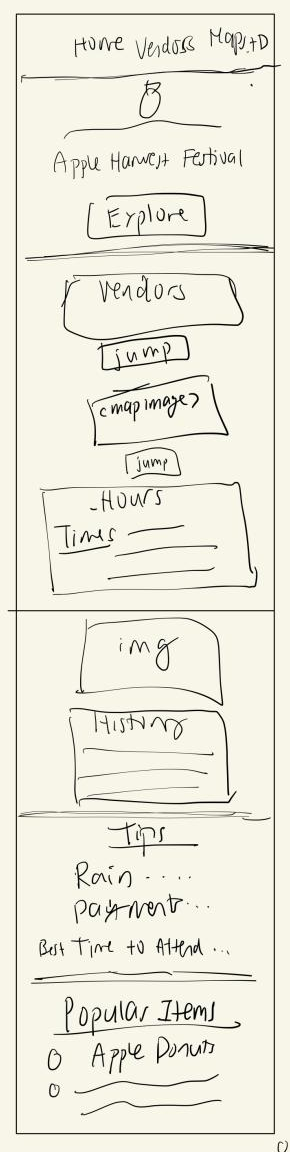 Home Vendors Maps+D
Apple Harvest Festival
Explore
Vendors
jump
<mapimage>
jump
Hours
Times
img
History
Tips
Rain ....
payment...
Best Time to Attend ...
Popular Items
Apple Donuts